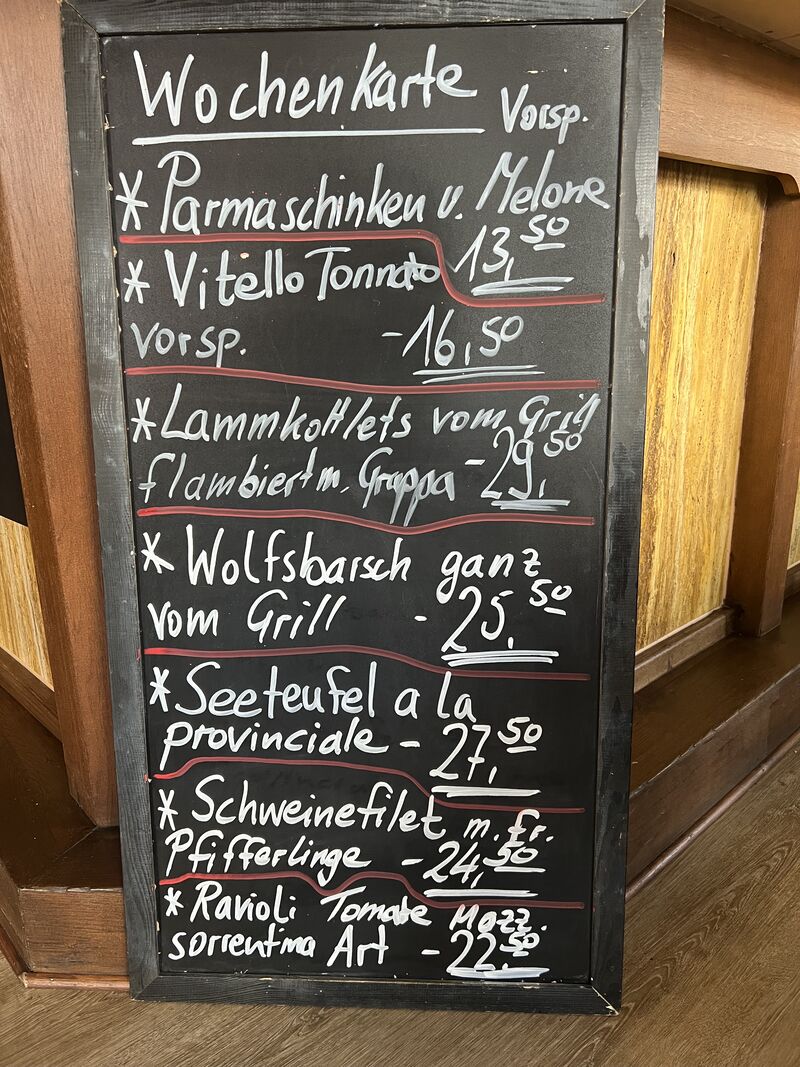 Wochenkarte Vorsp.
* Parmaschinken u. Melone
13,50
* Vitello Tonnato
vorsp. - 16,50
* Lammkottlets vom Grill
flambiert m. Grappa - 29,50
* Wolfsbarsch ganz
vom Grill - 25,50
* Seeteufel a la
provinciale - 27,50
* Schweinefilet m. fr.
Pfifferlinge - 24,50
* Ravioli Tomate Mozz.
sorrentina Art - 22,50